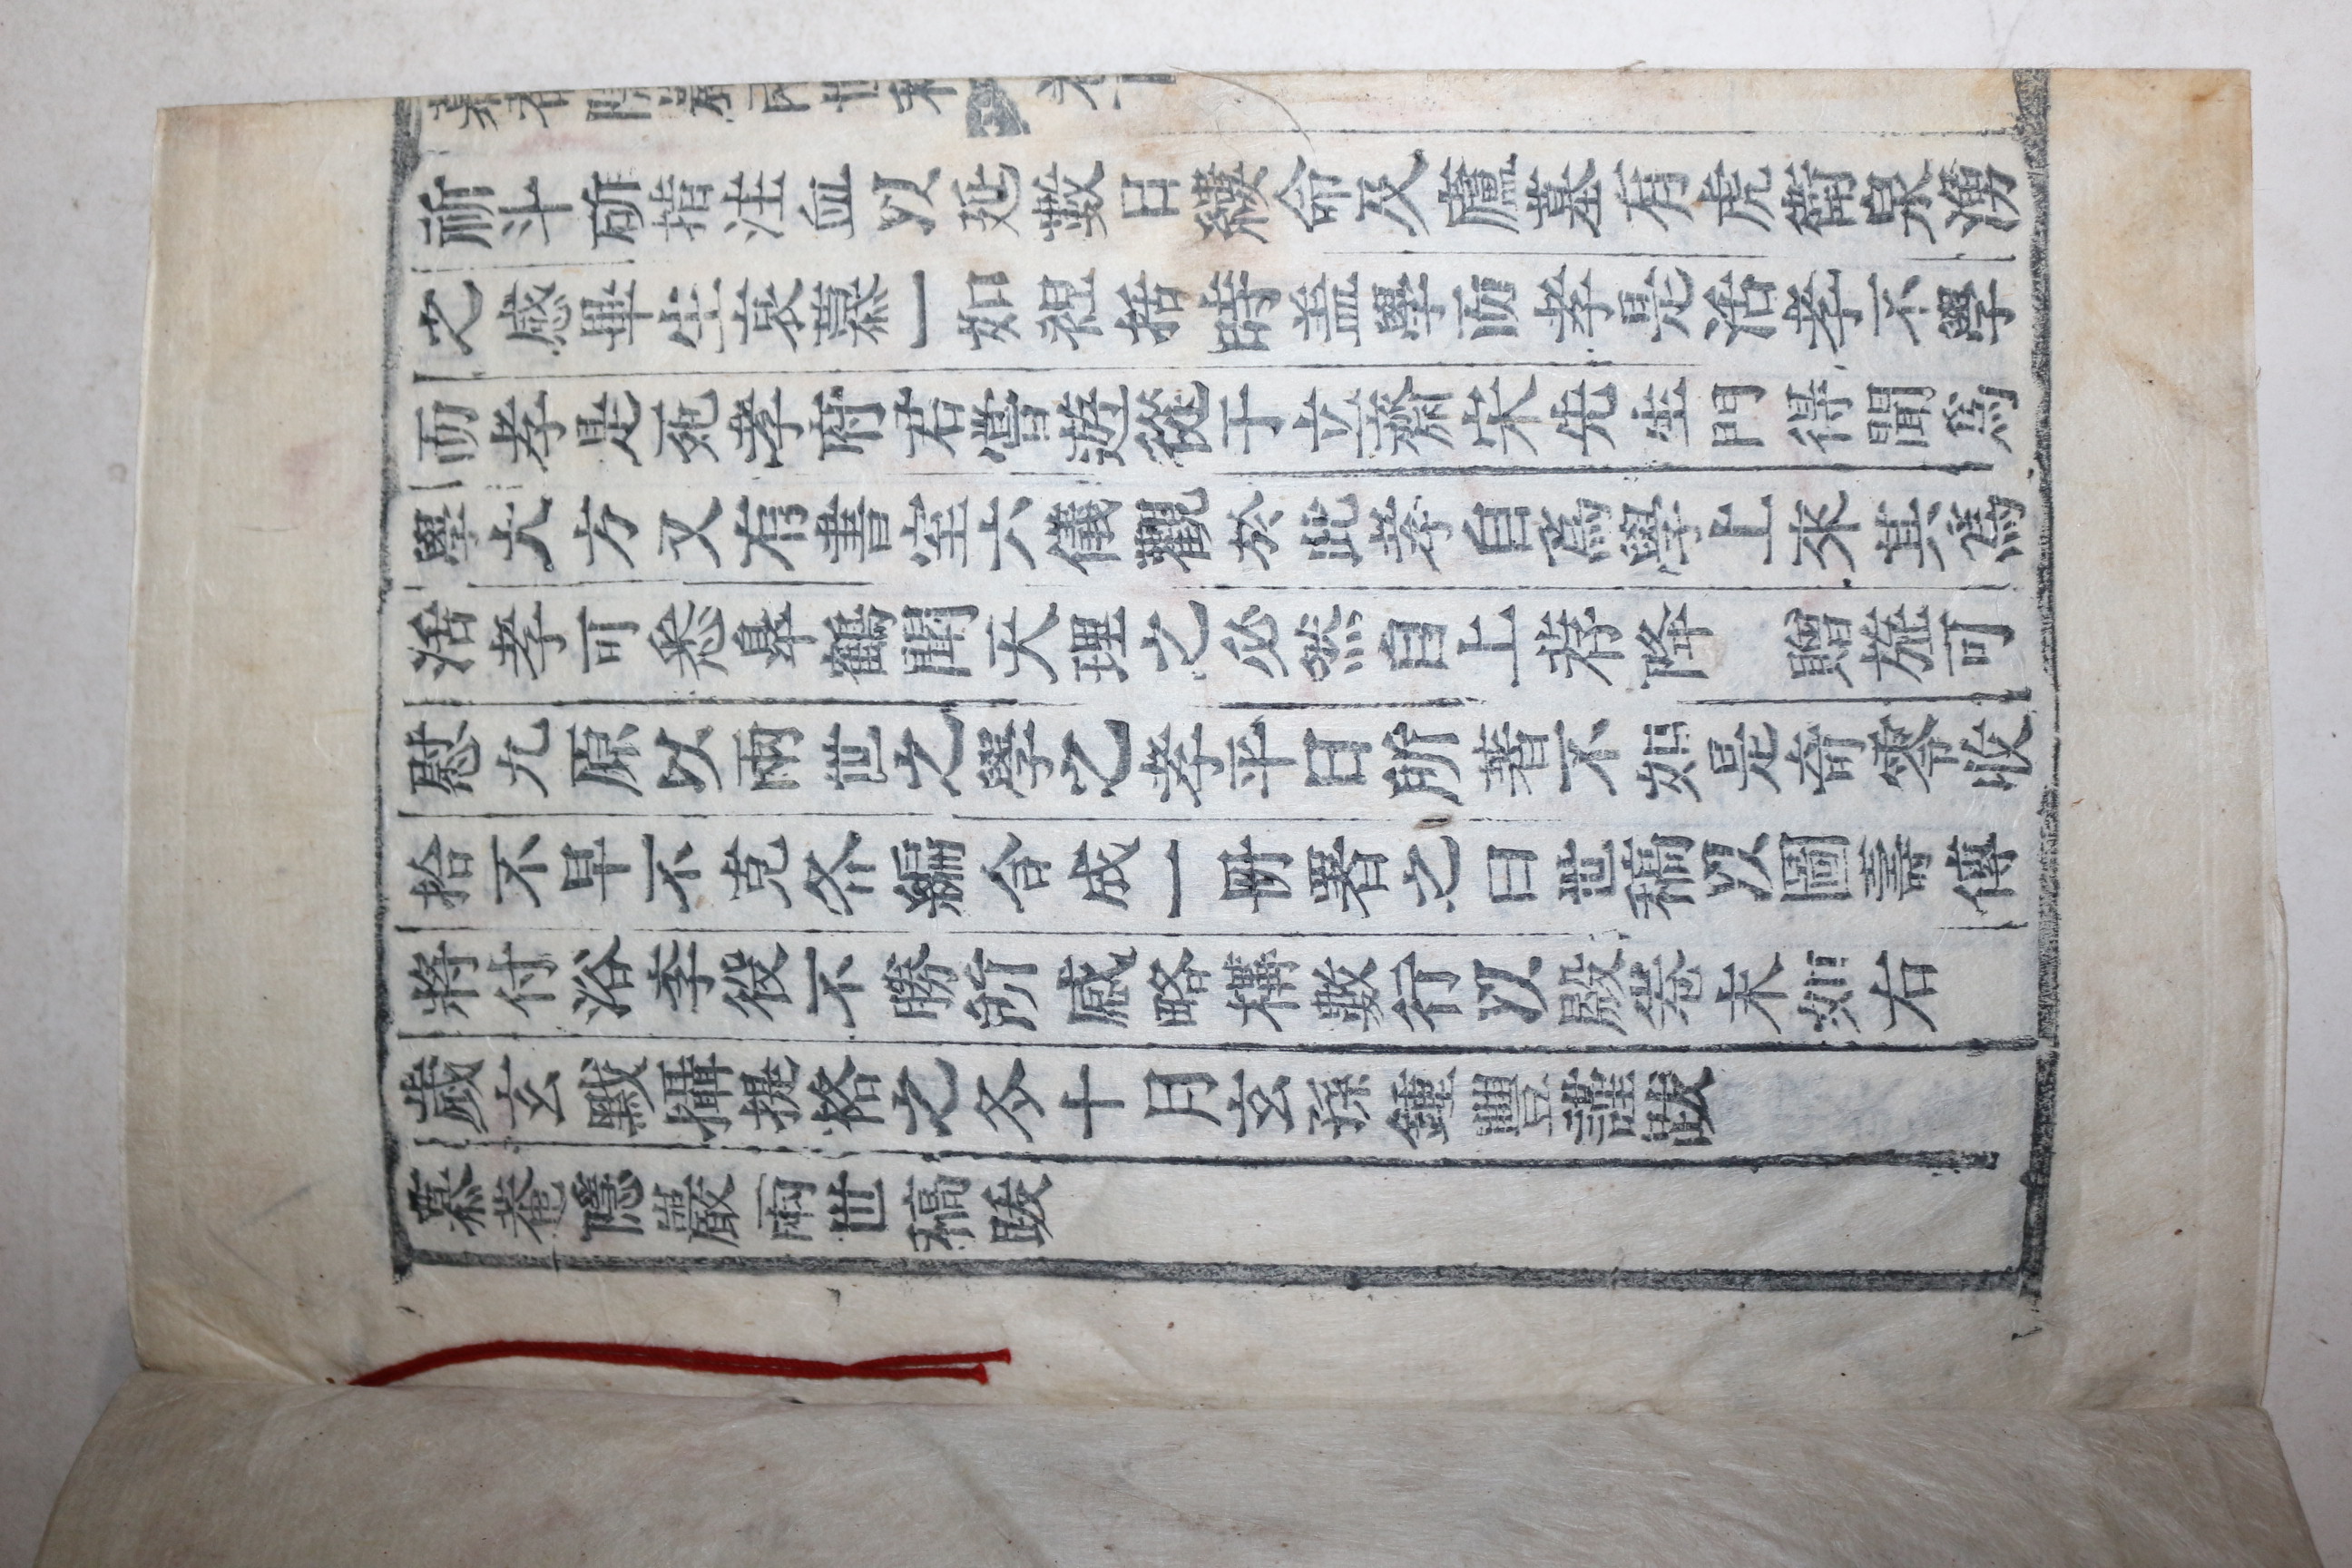 慕菴隱巖兩世稿 卷下
祈斗斫指注血以延數日縷命及廬墓有虎衛泉湧
之感畢生哀慕一如袒括時盖學而孝是活孝不學
而孝是死孝府君嘗遊從于立齋宋先生門得聞爲
學大方又有書室六儀觀於此孝自爲學上來其爲
活孝可悉臯鶴聞天理之必然自上荐降 贈旌可
慰九原以兩世之學之孝平日所著不如是奇零收
拾不早不克各編合成一冊署之曰世稿以圖壽傳
將付浴李役不勝所感略構數行以殿卷末如右
歲玄黓攝提格之冬十月玄孫鍾豐謹跋
慕菴隱巖兩世稿跋